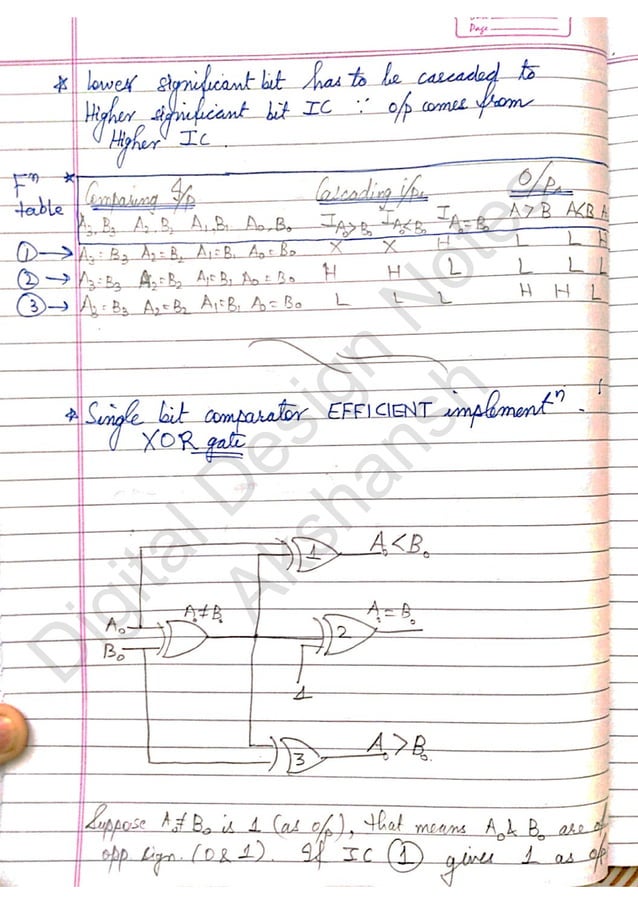 Page
* Lower significant bit has to be cascaded to
Higher significant bit IC ∵ o/p comes from
Higher IC.
Fⁿ table
* Comparing I/p Cascading i/ps O/ps
A₃,B₃ A₂,B₂ A₁,B₁ A₀,B₀ I A>B₀ I A<B₀ I A=B₀ A>B A<B A
① → A₃=B₃ A₂=B₂ A₁=B₁ A₀=B₀ X X H L L H
② → A₃=B₃ A₂=B₂ A₁=B₁ A₀=B₀ H H L L L L
③ → A₃=B₃ A₂=B₂ A₁=B₁ A₀=B₀ L L L H H L
* Single bit comparator EFFICIENT implementⁿ -
XOR gate
1 A₀<B₀
A₀≠B₀
A₀
B₀
2 A₀=B₀
1
3 A₀>B₀.
Suppose A₀≠B₀ is 1 (as o/p), that means A₀ & B₀ are of
opp sign. (0 & 1). If IC ① gives 1 as o/p
Digital Design Notes
Akshansh